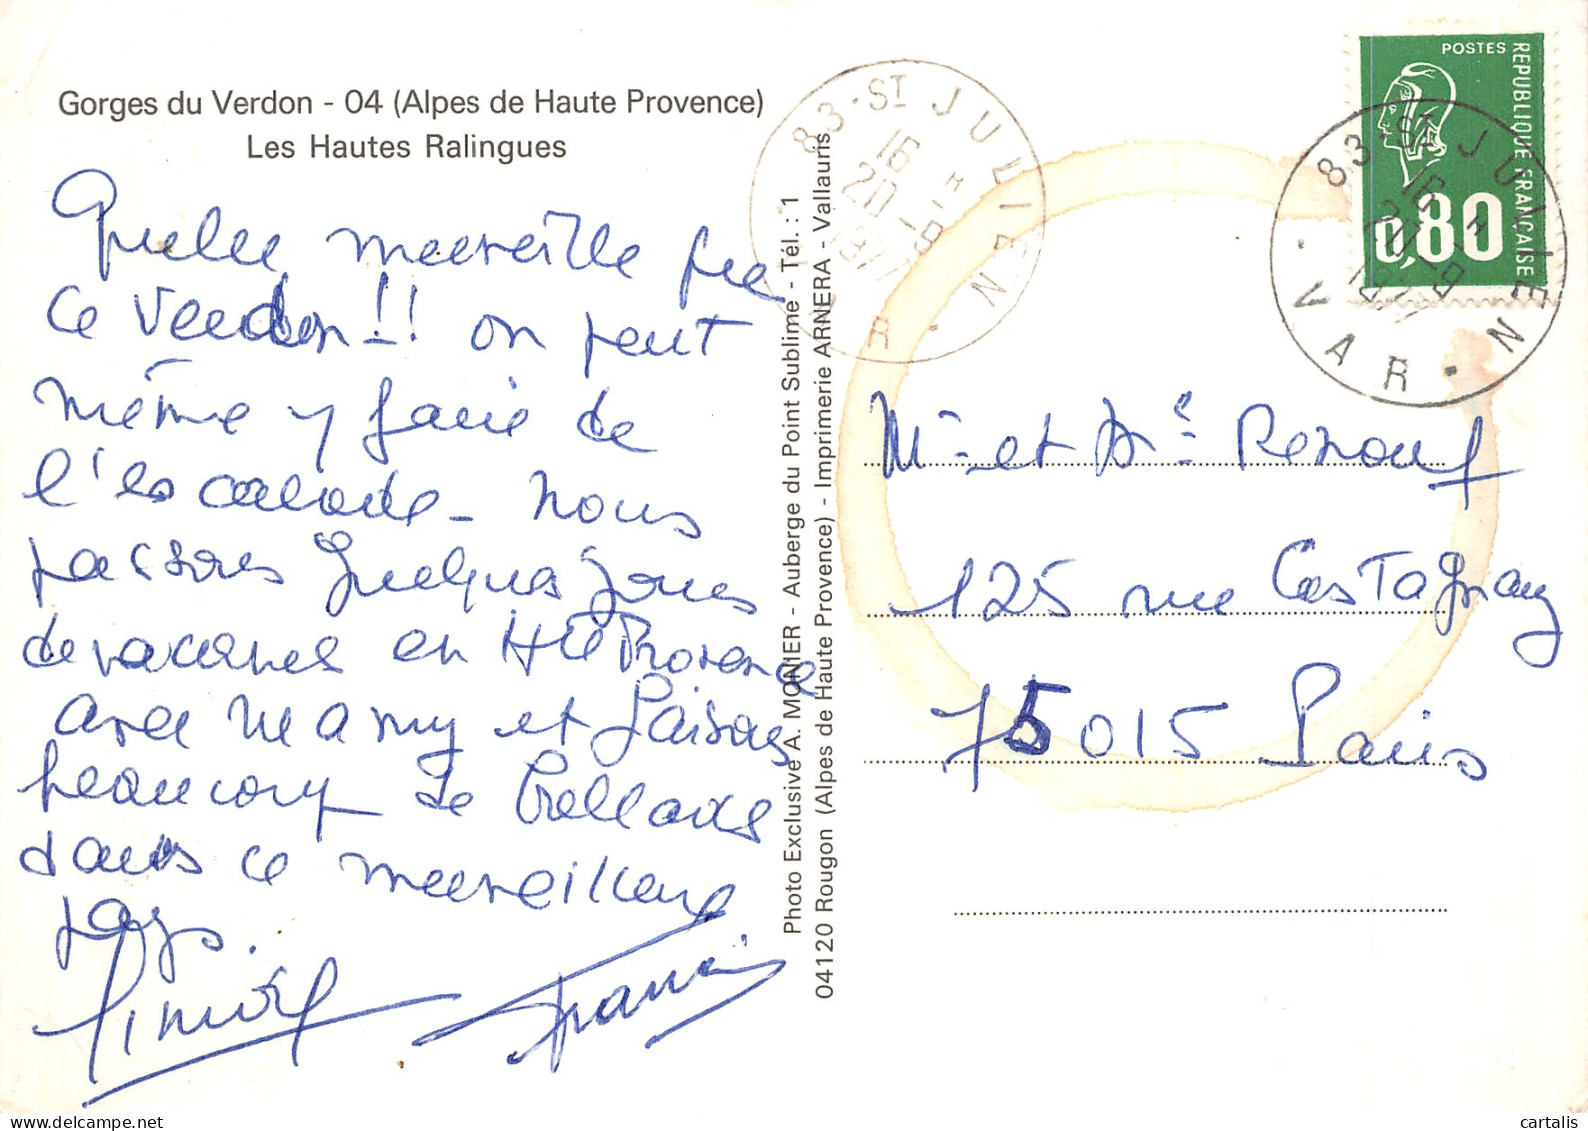 Gorges du Verdon - 04 (Alpes de Haute Provence)
Les Hautes Ralingues
Quelle merveille que
ce Verdon!! on peut
même y faire de
l'escalade - nous
passons quelques jours
de vacances en Hte Provence
avec Mamy et faisons
beaucoup de ballades
dans ce merveilleux
pays.
Francis
Photo Exclusive A. MONIER - Auberge du Point Sublime - Tél. : 1
04120 Rougon (Alpes de Haute Provence) - Imprimerie ARNERA - Vallauris
83 - ST JULIEN
16 H
20 - 9
1977
VAR
POSTES
REPUBLIQUE FRANÇAISE
0,80
83 - ST JULIEN
16 H
20 - 9
1977
VAR
Mr et Me Renouf
125 rue Castagnary
75015 Paris
www.cartalis.com
cartalis